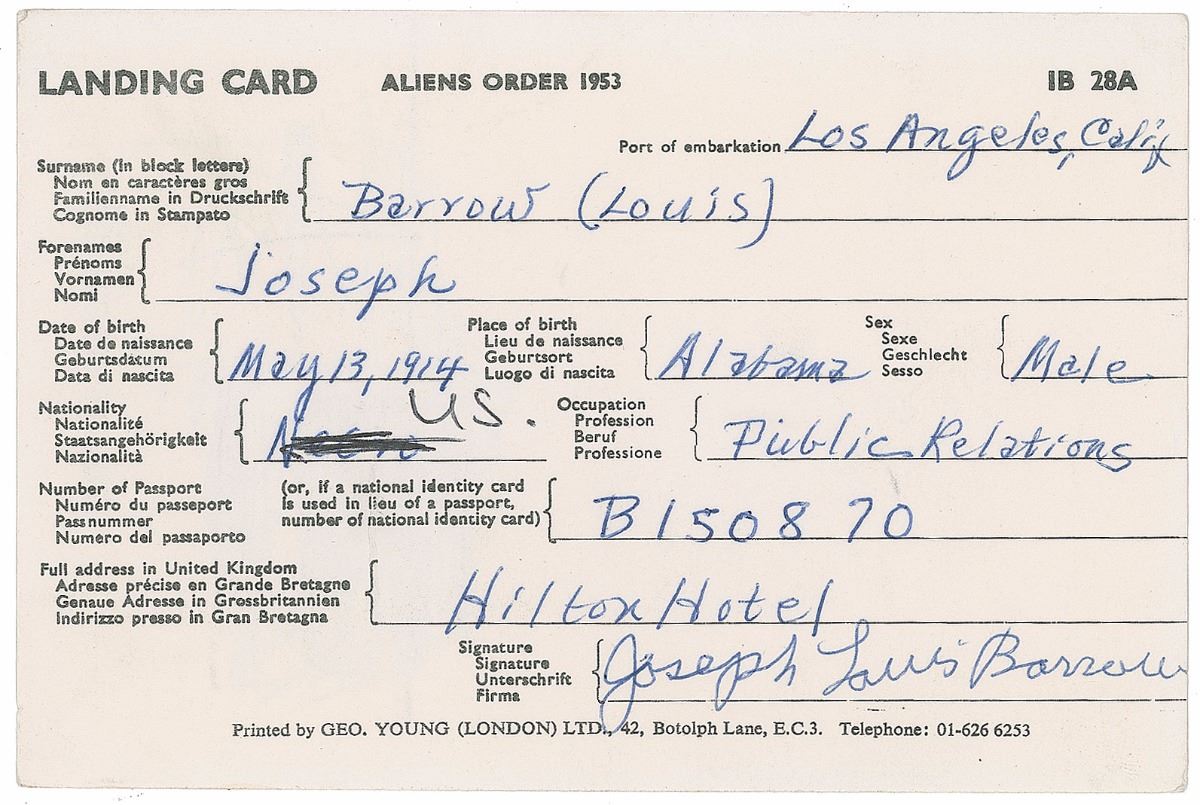 LANDING CARD ALIENS ORDER 1953 IB 28A
Port of embarkation Los Angeles, Calif
Surname (in block letters)
Nom en caractères gros
Familienname in Druckschrift
Cognome in Stampato
Barrow (Louis)
Forenames
Prénoms
Vornamen
Nomi
Joseph
Date of birth
Date de naissance
Geburtsdatum
Data di nascita
May 13, 1914
Place of birth
Lieu de naissance
Geburtsort
Luogo di nascita
Alabama
Sex
Sexe
Geschlecht
Sesso
Male
Nationality
Nationalité
Staatsangehörigkeit
Nazionalità
US.
Occupation
Profession
Beruf
Professione
Public Relations
Number of Passport
Numéro du passeport
Passnummer
Numero del passaporto
(or, if a national identity card
is used in lieu of a passport,
number of national identity card)
B150870
Full address in United Kingdom
Adresse précise en Grande Bretagne
Genaue Adresse in Grossbritannien
Indirizzo presso in Gran Bretagna
Hilton Hotel
Signature
Signature
Unterschrift
Firma
Joseph Louis Barrow
Printed by GEO. YOUNG (LONDON) LTD., 42, Botolph Lane, E.C.3. Telephone: 01-626 6253